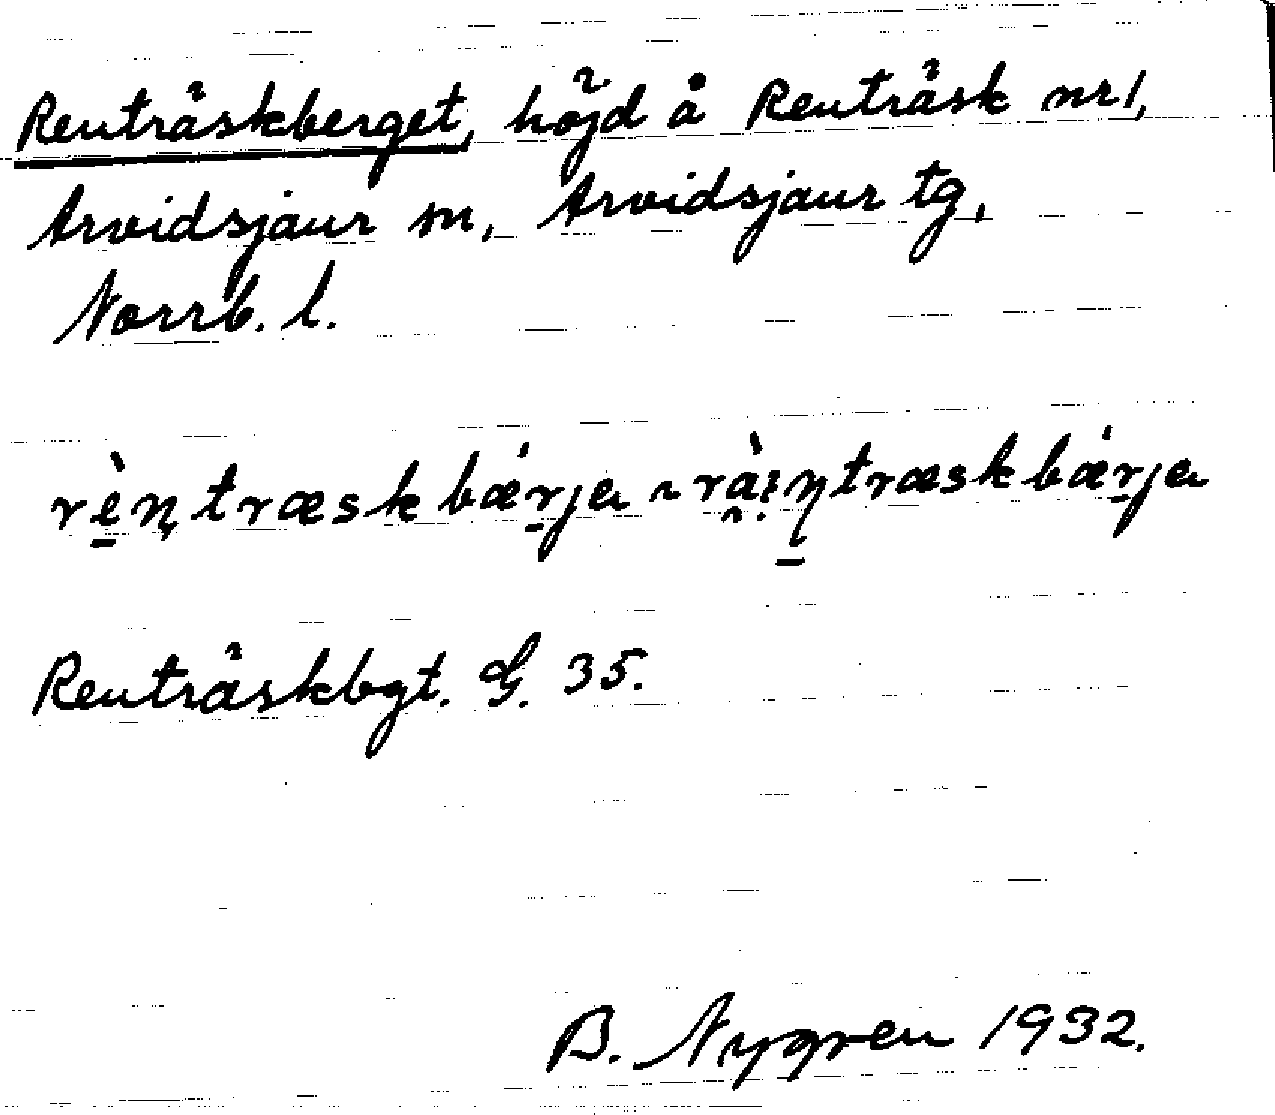 Renträskberget, höjd å Renträsk nr 1,
Arvidsjaur sn, Arvidsjaur tg,
Norrb. l.
rèntræskbǽrjα ~ ràintræskbǽrjα
Renträskbgt. G. 35.
B. Nygren 1932.